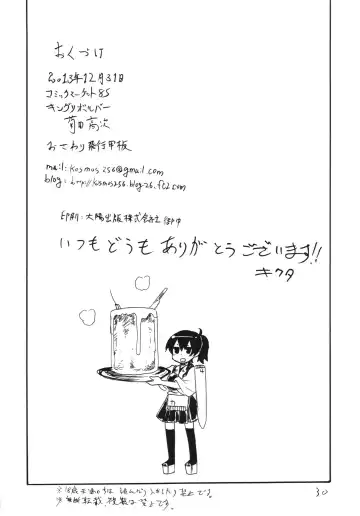 おくづけ
2013年12月31日
コミックマーケット85
キングリボルバー
菊田高次
おさわり飛行甲板
mail: kosmos256@gmail.com
blog: http://kosmos256.blog26.fc2.com
印刷: 太陽出版株式会社御中
いつもどうもありがとうございます!!
キクタ
※18歳未満の方は読んだりうったり禁止です。
※無断転載、複製は禁止です。
30